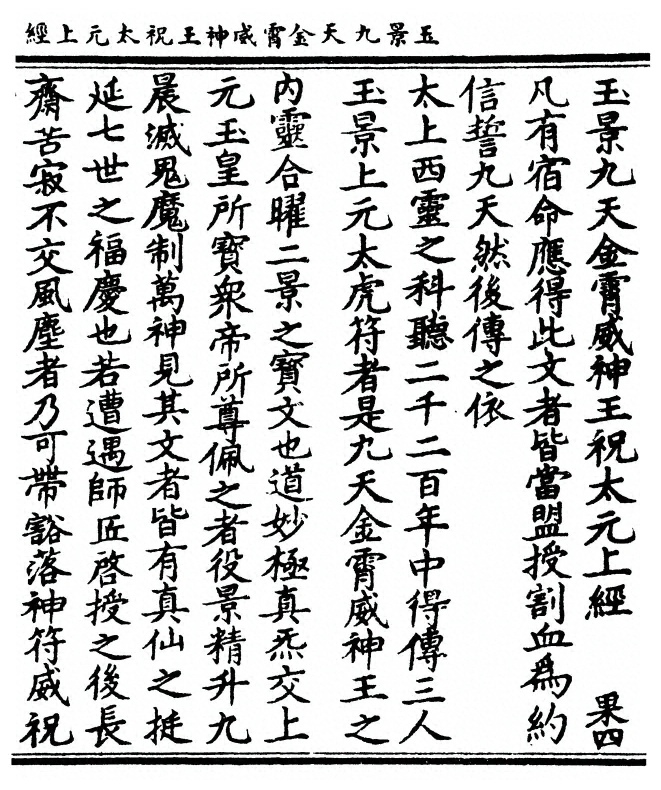 玉景九天金霄威神王祝太元上經
玉景九天金霄威神王祝太元上經 果四
凡有宿命應得此文者皆當盟授割血爲約
信誓九天然後傳之依
太上西靈之科聽二千二百年中得傳三人
玉景上元太虎符者是九天金霄威神王之
內靈合曜二景之寶文也道妙極真炁交上
元玉皇所寶衆帝所尊佩之者役景精升九
晨滅鬼魔制萬神見其文者皆有真仙之挺
延七世之福慶也若遭遇師匠啓授之後長
齋苦寂不交風塵者乃可帶豁落神符威祝